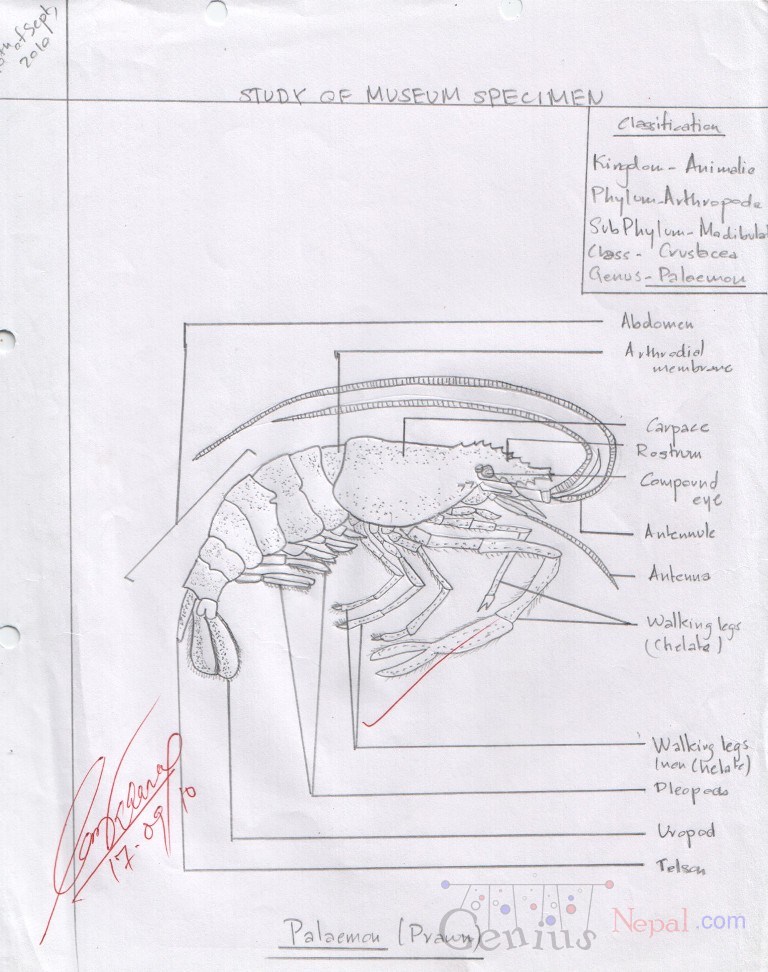 of Sept,
2010
STUDY OF MUSEUM SPECIMEN
Classification
Kingdom - Animalia
Phylum - Arthropoda
SubPhylum - Madibulat
Class - Crustacea
Genus - Palaemon
Abdomen
Arthrodial
membrane
Carpace
Rostrum
Compound
eye
Antennule
Antenna
Walking legs
(Chelate)
Walking legs
(non Chelate)
Pleopods
Uropod
Telson
17-09-10
Palaemon (Prawn)
Genius Nepal.com